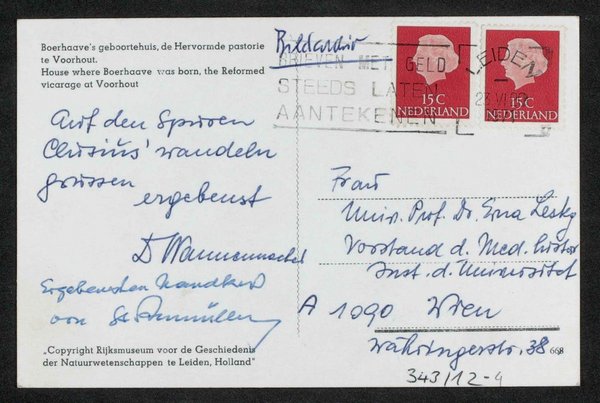 Boerhaave's geboortehuis, de Hervormde pastorie
te Voorhout.
House where Boerhaave was born, the Reformed
vicarage at Voorhout
Bildarchiv
BRIEVEN MET GELD
STEEDS LATEN
AANTEKENEN
LEIDEN
15 C
NEDERLAND
15 C
NEDERLAND
Auf den Spuren
Clusius' wandeln
grüssen
ergebenst
Ergebensten Handkuß
von
Frau
Univ. Prof. Dr. Erna Lesky
Vorstand d. Med. histor
Inst. d. Universität
A 1090 Wien
Währingerstr. 38
668
343/12-4
„Copyright Rijksmuseum voor de Geschiedenis
der Natuurwetenschappen te Leiden, Holland"